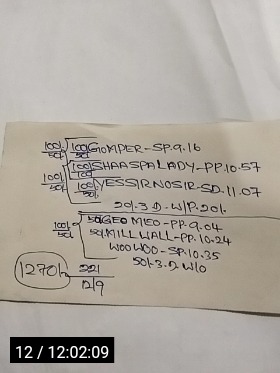 100/50/- 100/50 GOMPER-SP.9.16
100/100 SHAASPALADY-PP.10.57
100/50/- 100/50/- YESSIRNOSIR-SD.11.07
20/-3D-W/P.20/-
100/50/- 50/GEOMEO-PP-9.04
50/MILLWALL-PP.10-24
WOOWOO-SP.10.35
50/-3.D.W/O
1270/- 221
12/9
12 / 12:02:09